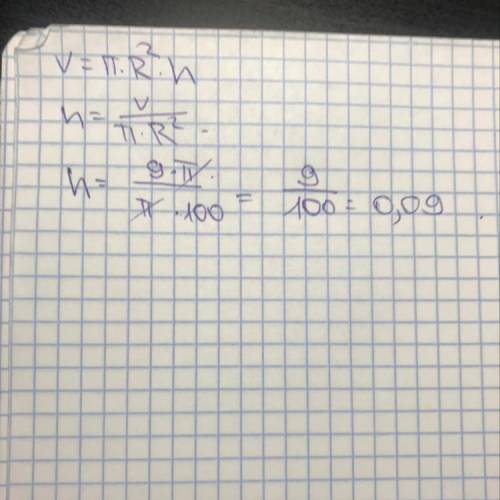 V = π · R² · h
h = V / π · R²
h = 9 · π / π · 100 = 9 / 100 = 0,09